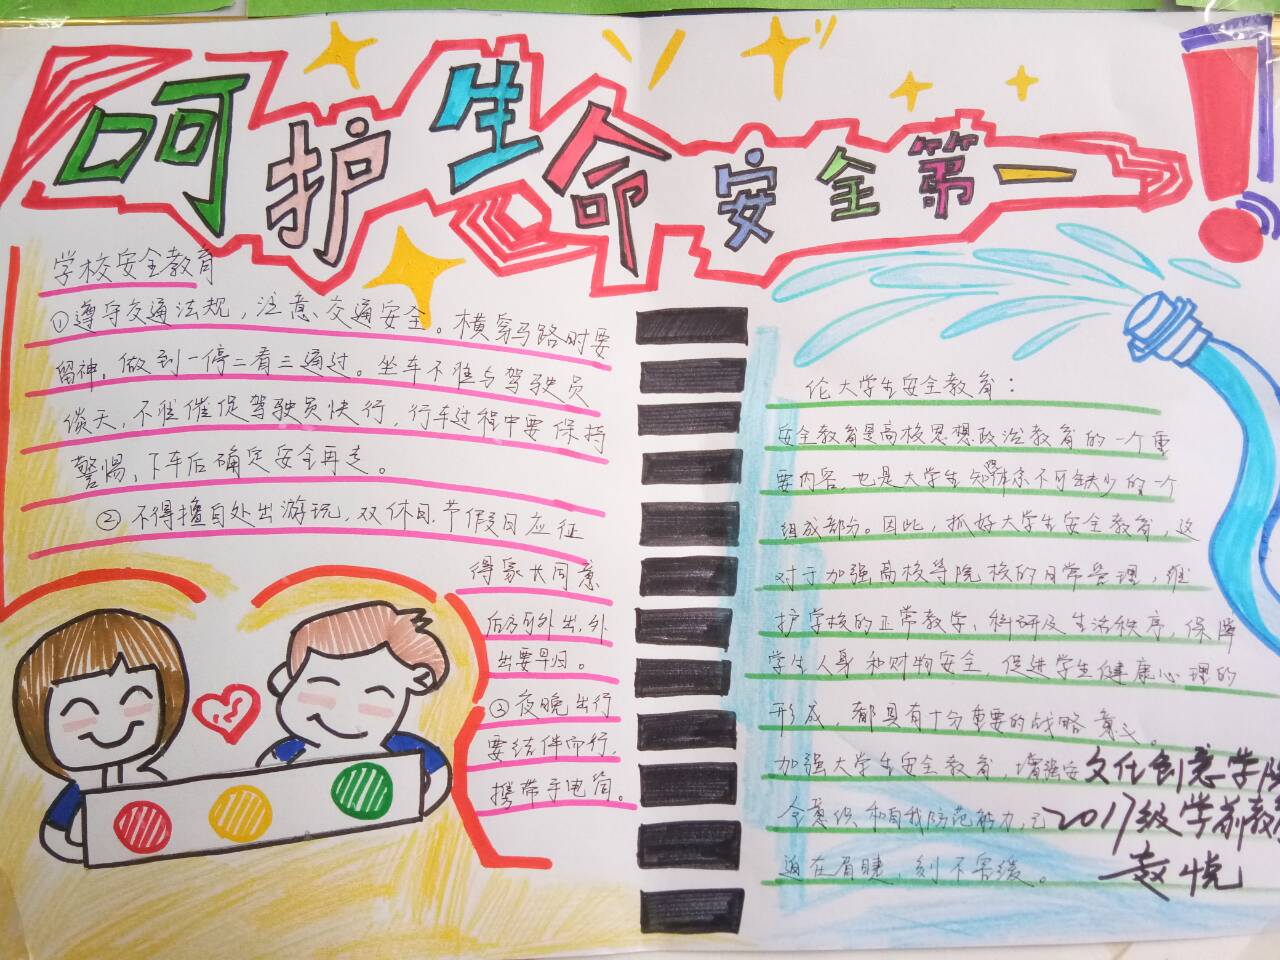 呵护生命安全第一
学校安全教育
①遵守交通法规，注意交通安全。横穿马路时要
留神，做到一停二看三通过。坐车不准与驾驶员
谈天，不准催促驾驶员快行，行车过程中要保持
警惕，下车后确定安全再走。
②不得擅自外出游玩，双休日、节假日应征
得家长同意
后方可外出，外
出要早归。
③夜晚出行
要结伴而行，
携带手电筒。
伦大学生安全教育：
安全教育是高校思想政治教育的一个重
要内容，也是大学生知识体系不可缺少的一个
组成部分。因此，抓好大学生安全教育，这
对于加强高校等院校的日常管理，维
护学校的正常教学、科研及生活秩序，保障
学生人身和财物安全，促进学生健康心理的
形成，都具有十分重要的战略意义。
加强大学生安全教育，增强安
全意识和自我防范能力，已
迫在眉睫，刻不容缓。
文化创意学院
2017级学前教育
赵悦